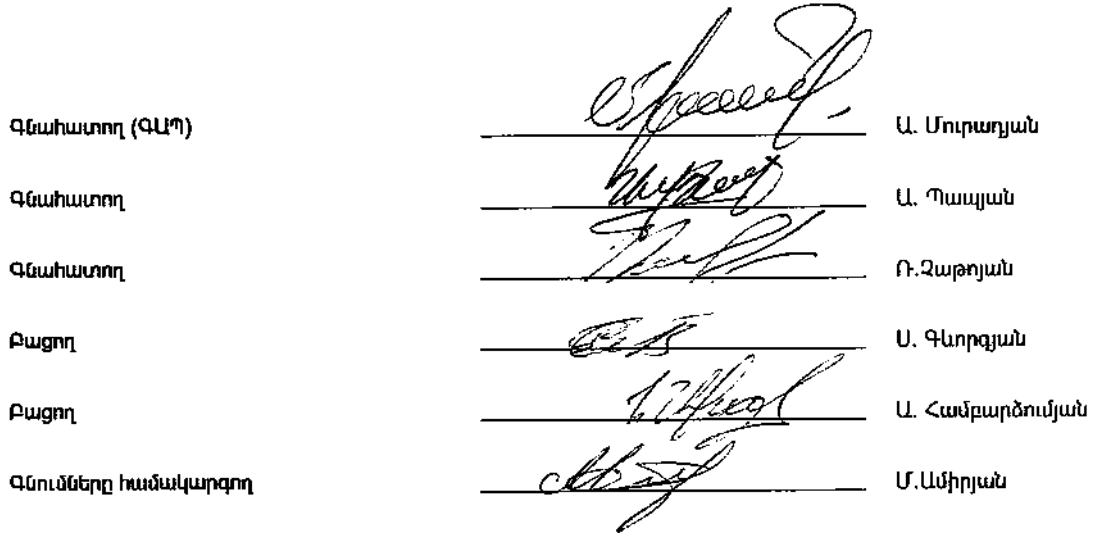 Գնահատող (ԳԱՊ) Ա. Մուրադյան
Գնահատող Ա. Պապյան
Գնահատող Ռ.Չաթոյան
Բացող Ս. Գևորգյան
Բացող Ա. Համբարձումյան
Գնումները համակարգող Մ.Ամիրյան